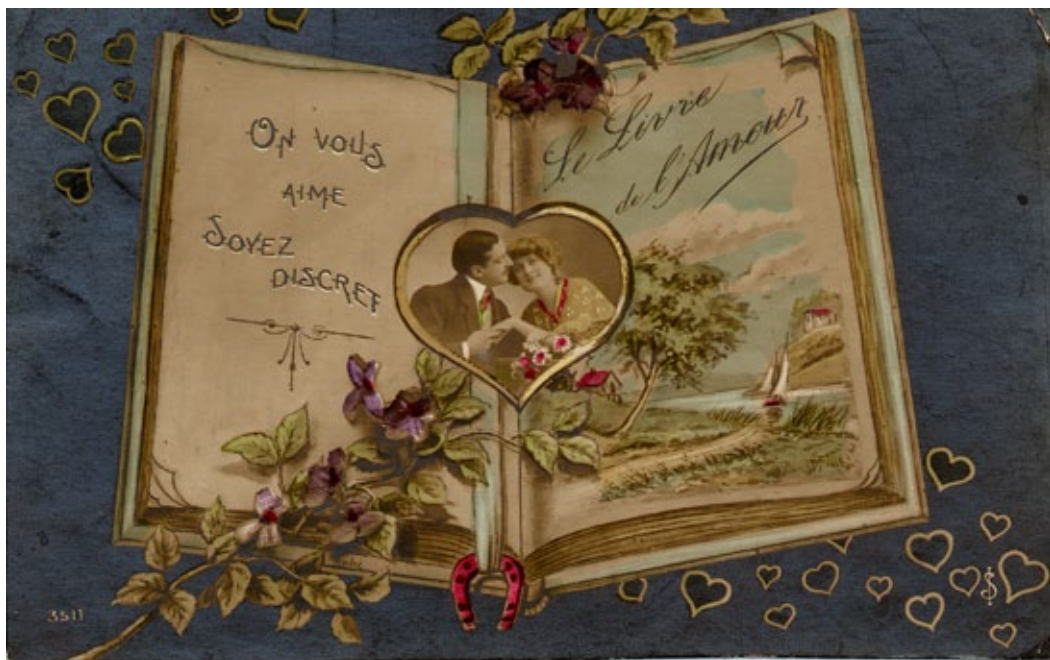 On vous
aime
Soyez
discret
Le Livre
de l'Amour
3511